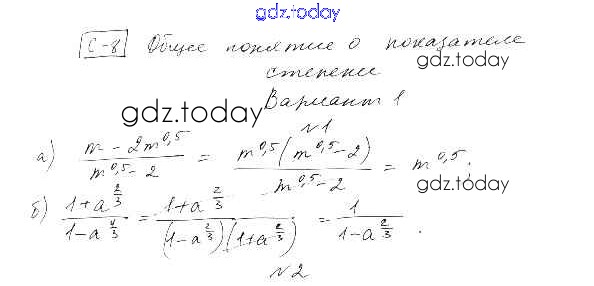 gdz.today
С-8 Общее понятие о показателе
степени
gdz.today
Вариант 1
gdz.today
№1
а) \frac{m - 2m^{0,5}}{m^{0,5} - 2} = \frac{m^{0,5}(m^{0,5} - 2)}{m^{0,5} - 2} = m^{0,5};
gdz.today
б) \frac{1+a^{\frac{2}{3}}}{1-a^{\frac{4}{3}}} = \frac{1+a^{\frac{2}{3}}}{(1-a^{\frac{2}{3}})(1+a^{\frac{2}{3}})} = \frac{1}{1-a^{\frac{2}{3}}}.
№2